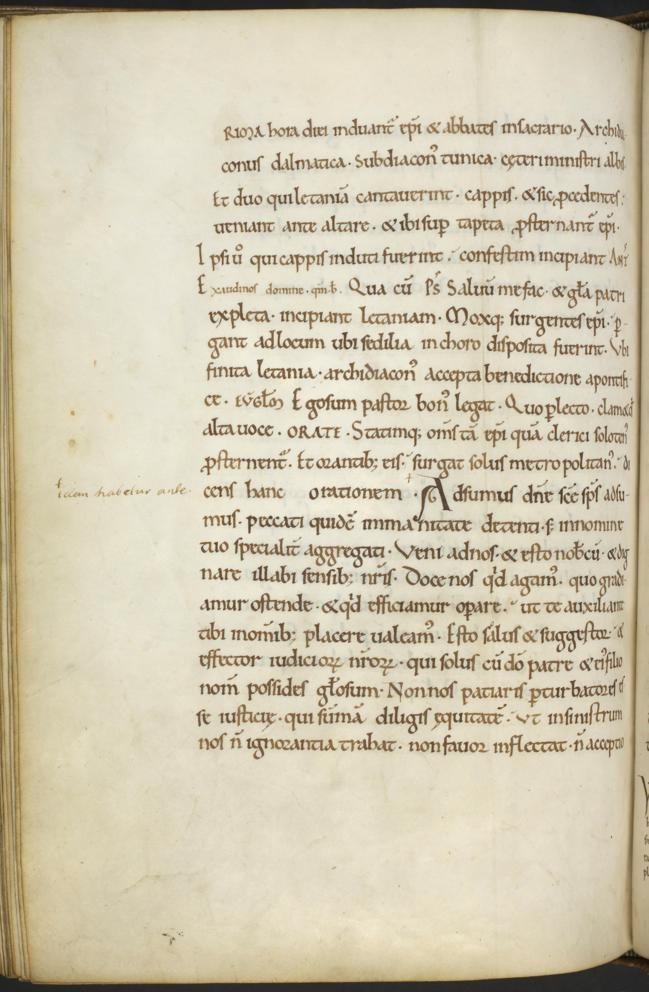 RIMA hora diei induant̄ ep̄i & abbates in sacrario. Archidia
conus dalmatica. Subdiacon̄ tunica. cęteri ministri albis
Et duo qui letaniā cantaverint. cappis. & sic p̄cedentes.
ueniant ante altare. & ibi sup̄ tapeta p̄sternant̄ ep̄i.
Ipsi ū qui cappis induti fuerint. confestim incipiant
Exaudi nos domine. qm̄. b. Qua cū Ps̄ Saluū me fac. & gl̄a patri
expleta. incipiant letaniam. Moxq; surgentes ep̄i. p̄
gant ad locum ubi sedilia in choro disposita fuerint. Vbi
finita letania. archidiacon̄ accepta benedictione a pontifi
ce. Ego sum pastor bon̄ legat. Quo plecto. clamat
alta uoce. ORATE. Statimq; om̄s tā ep̄i quā clerici solo ten̄
p̄sternent̄. Et orantib; eis. surgat solus metropolitan̄. di
etiam habetur ante
cens hanc orationem. Adsumus dn̄e sc̄e sp̄s adsu
mus. peccati quidē immanitate detenti. s; in nomine
tuo specialit̄ aggregati. Veni ad nos. & esto nob̄ cū. & dig
nare illabi sensib; nr̄is. Doce nos qd̄ agam̄. quo gradi
amur ostende. & qd̄ efficiamur opare. ut te auxiliante
tibi in om̄ib; placere ualeam̄. Esto salus & suggestor. &
effector iudiciorꝝ nr̄orꝝ. qui solus cū dō patre & ei' filio
nom̄ possides gl̄osum. Non nos patiaris p̄turbatores es
se iusticię. qui sūmā diligis ęquitatē. Vt in sinistrum
nos n̄ ignorantia trahat. non fauor inflectat. n̄ acceptio